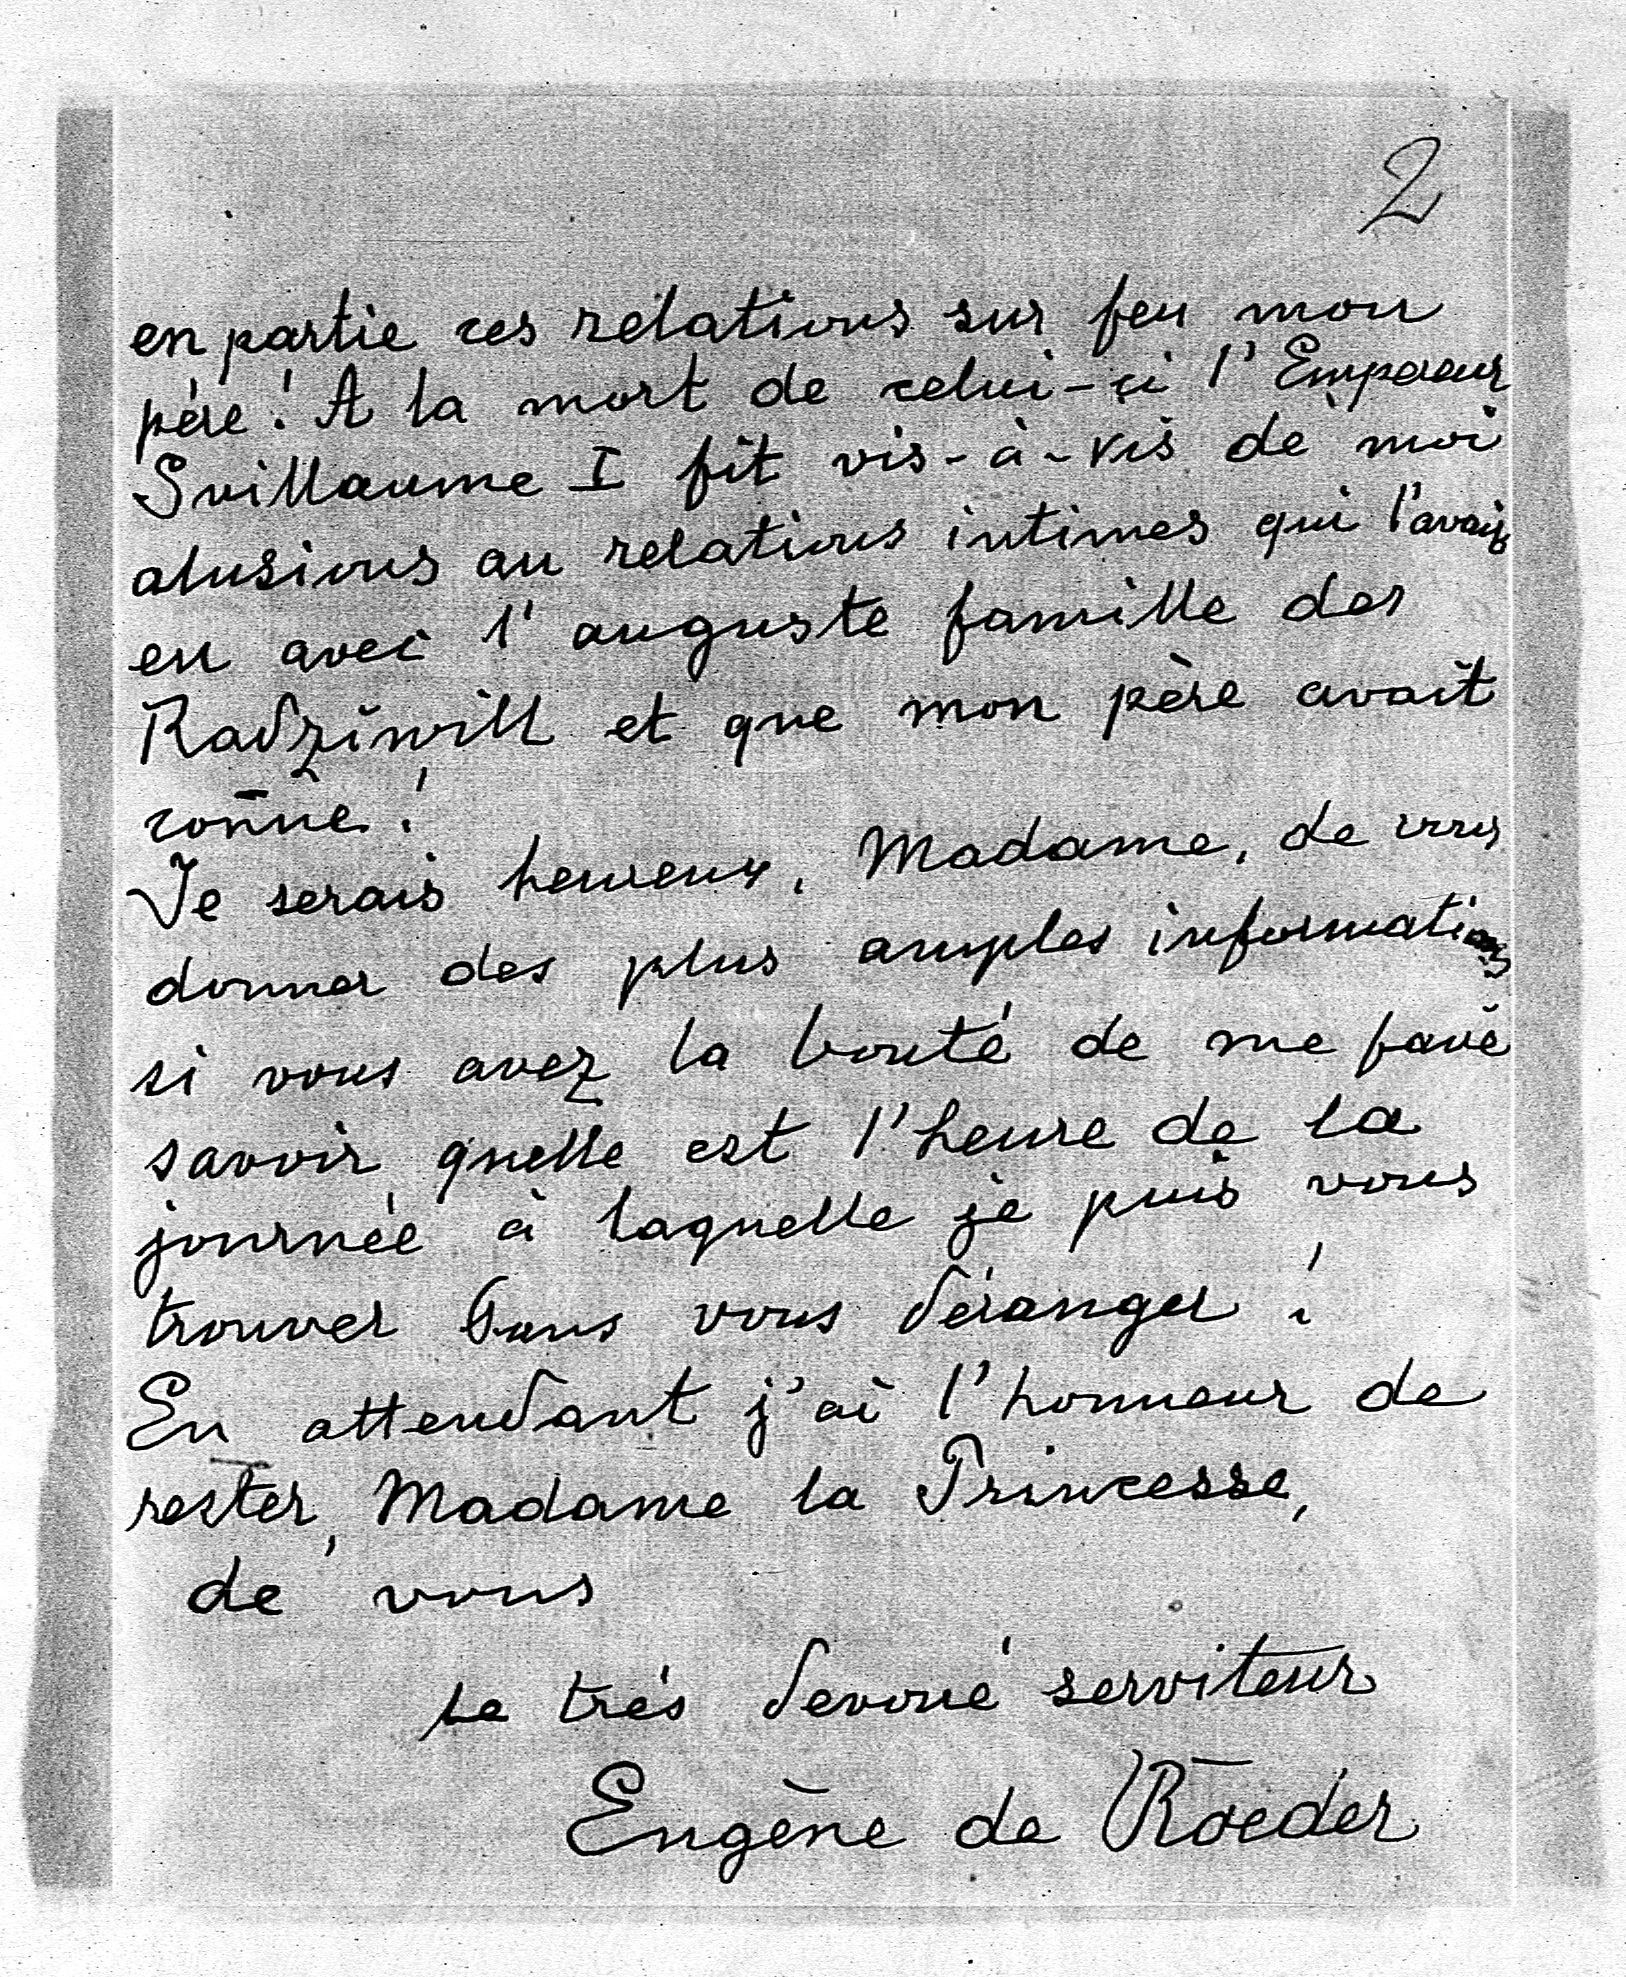 2
en partie ces relations sur feu mon
père! A la mort de celui-ci l'Empereur
Guillaume I fit vis-à-vis de moi
alusions au relations intimes qui l'avait
eu avec l'auguste famille des
Radziwill et que mon père avait
conne!
Je serais heureux, Madame, de vous
donner des plus amples informations
si vous avez la bonté de me faire
savoir quelle est l'heure de la
journée à laquelle je puis vous
trouver sans vous déranger!
En attendant j'ai l'honneur de
rester, Madame la Princesse,
de vous
le trés devoué serviteur
Eugène de Roeder